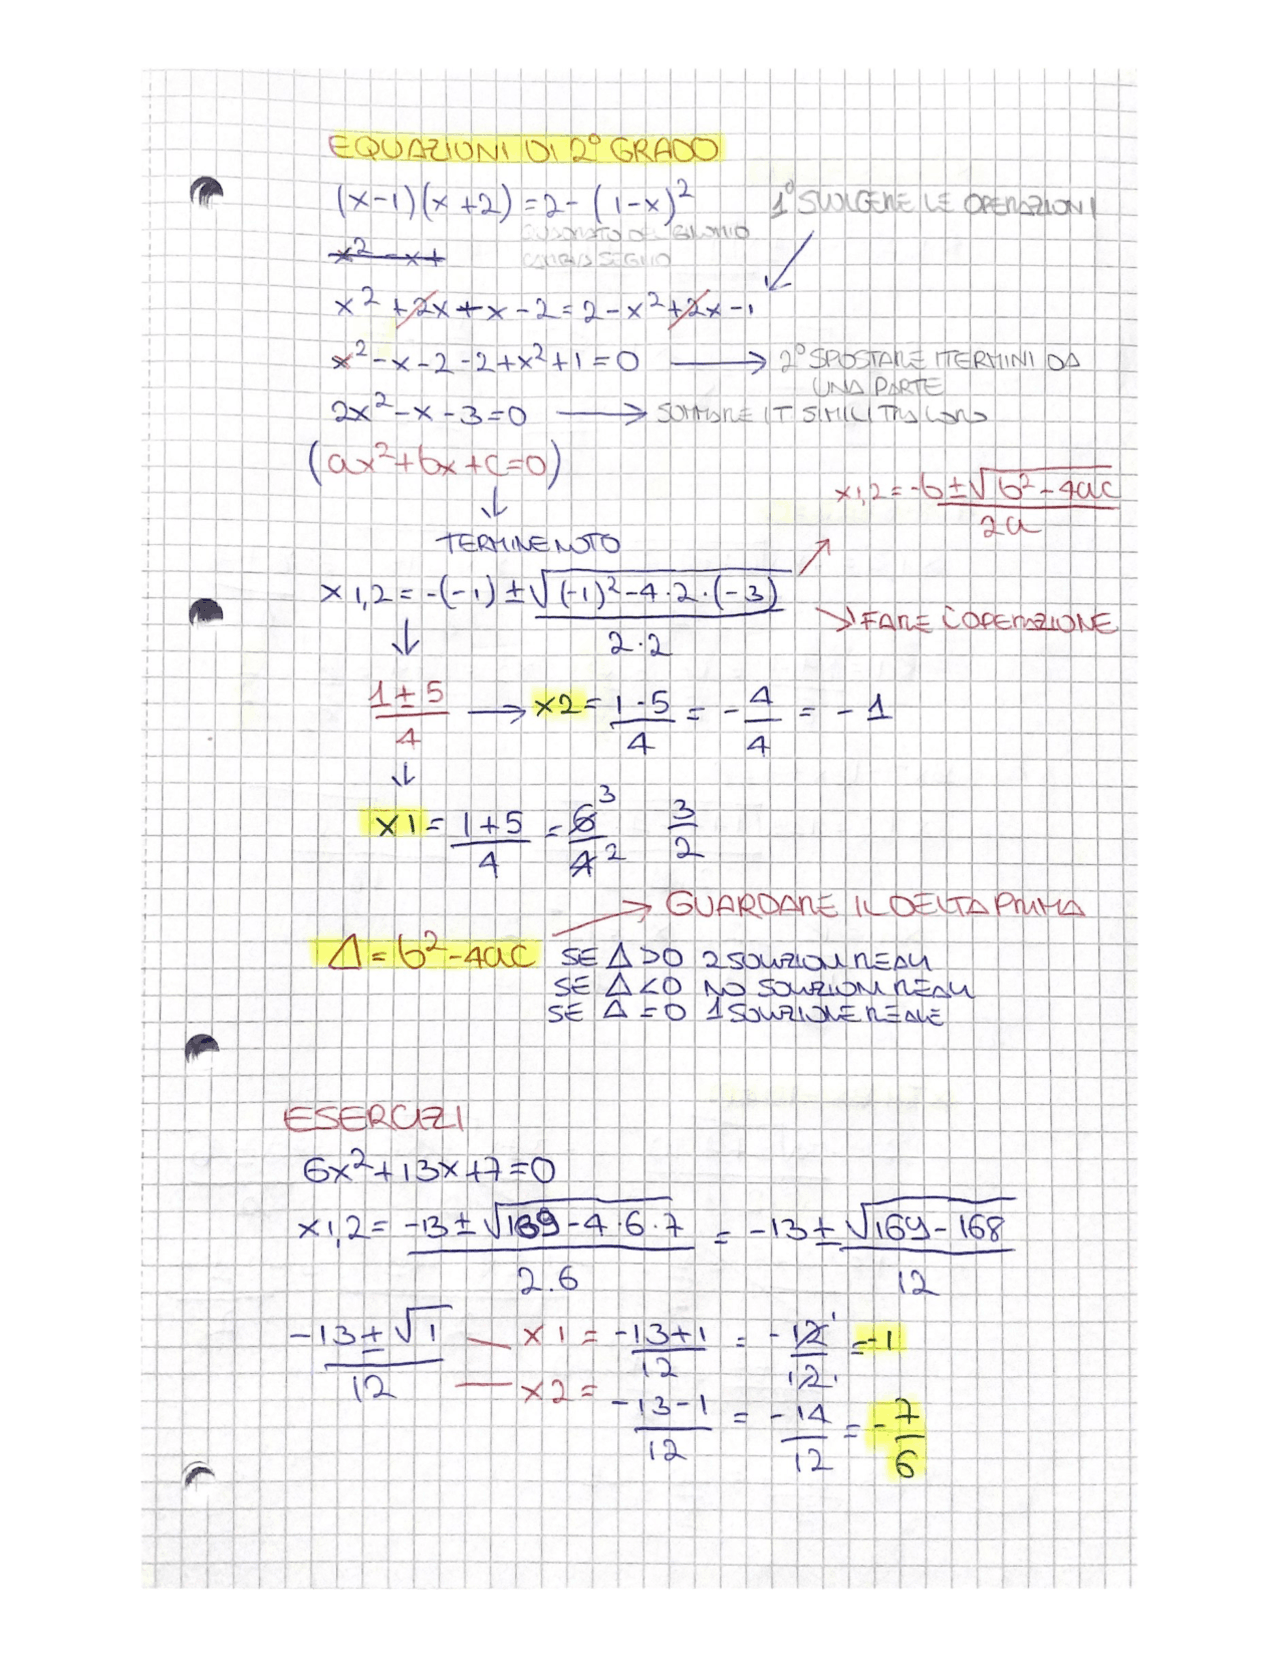 EQUAZIONI DI 2° GRADO
(x-1)(x+2)=2-(1-x)²
1° SVOLGERE LE OPERAZIONI
QUADRATO DEL BINOMIO
x²-x+
CAMBIA SEGNO
x²+2x+x-2=2-x²+2x-1
x²-x-2-2+x²+1=0 → 2° SPOSTARE I TERMINI DA
UNA PARTE
2x²-x-3=0 → SOMMARE I T SIMILI TRA LORO
(ax²+bx+c=0)
x1,2=-b±√b²-4ac
2a
↓
TERMINE NOTO
x1,2=-(-1)±√(-1)²-4·2·(-3)
2·2
→ FARE L'OPERAZIONE
↓
1±5 → x2=1-5=-4=-1
4 4 4
↓
x1=1+5=6 3 3
4 4 2 2
→ GUARDARE IL DELTA PRIMA
Δ=b²-4ac SE Δ>0 2 SOLUZIONI REALI
SE Δ<0 NO SOLUZIONI REALI
SE Δ=0 1 SOLUZIONE REALE
ESERCIZI
6x²+13x+7=0
x1,2=-13±√169-4·6·7=-13±√169-168
2.6 12
-13±√1 — x1=-13+1=-12=-1
12 12 12
— x2=-13-1=-14=-7
12 12 6